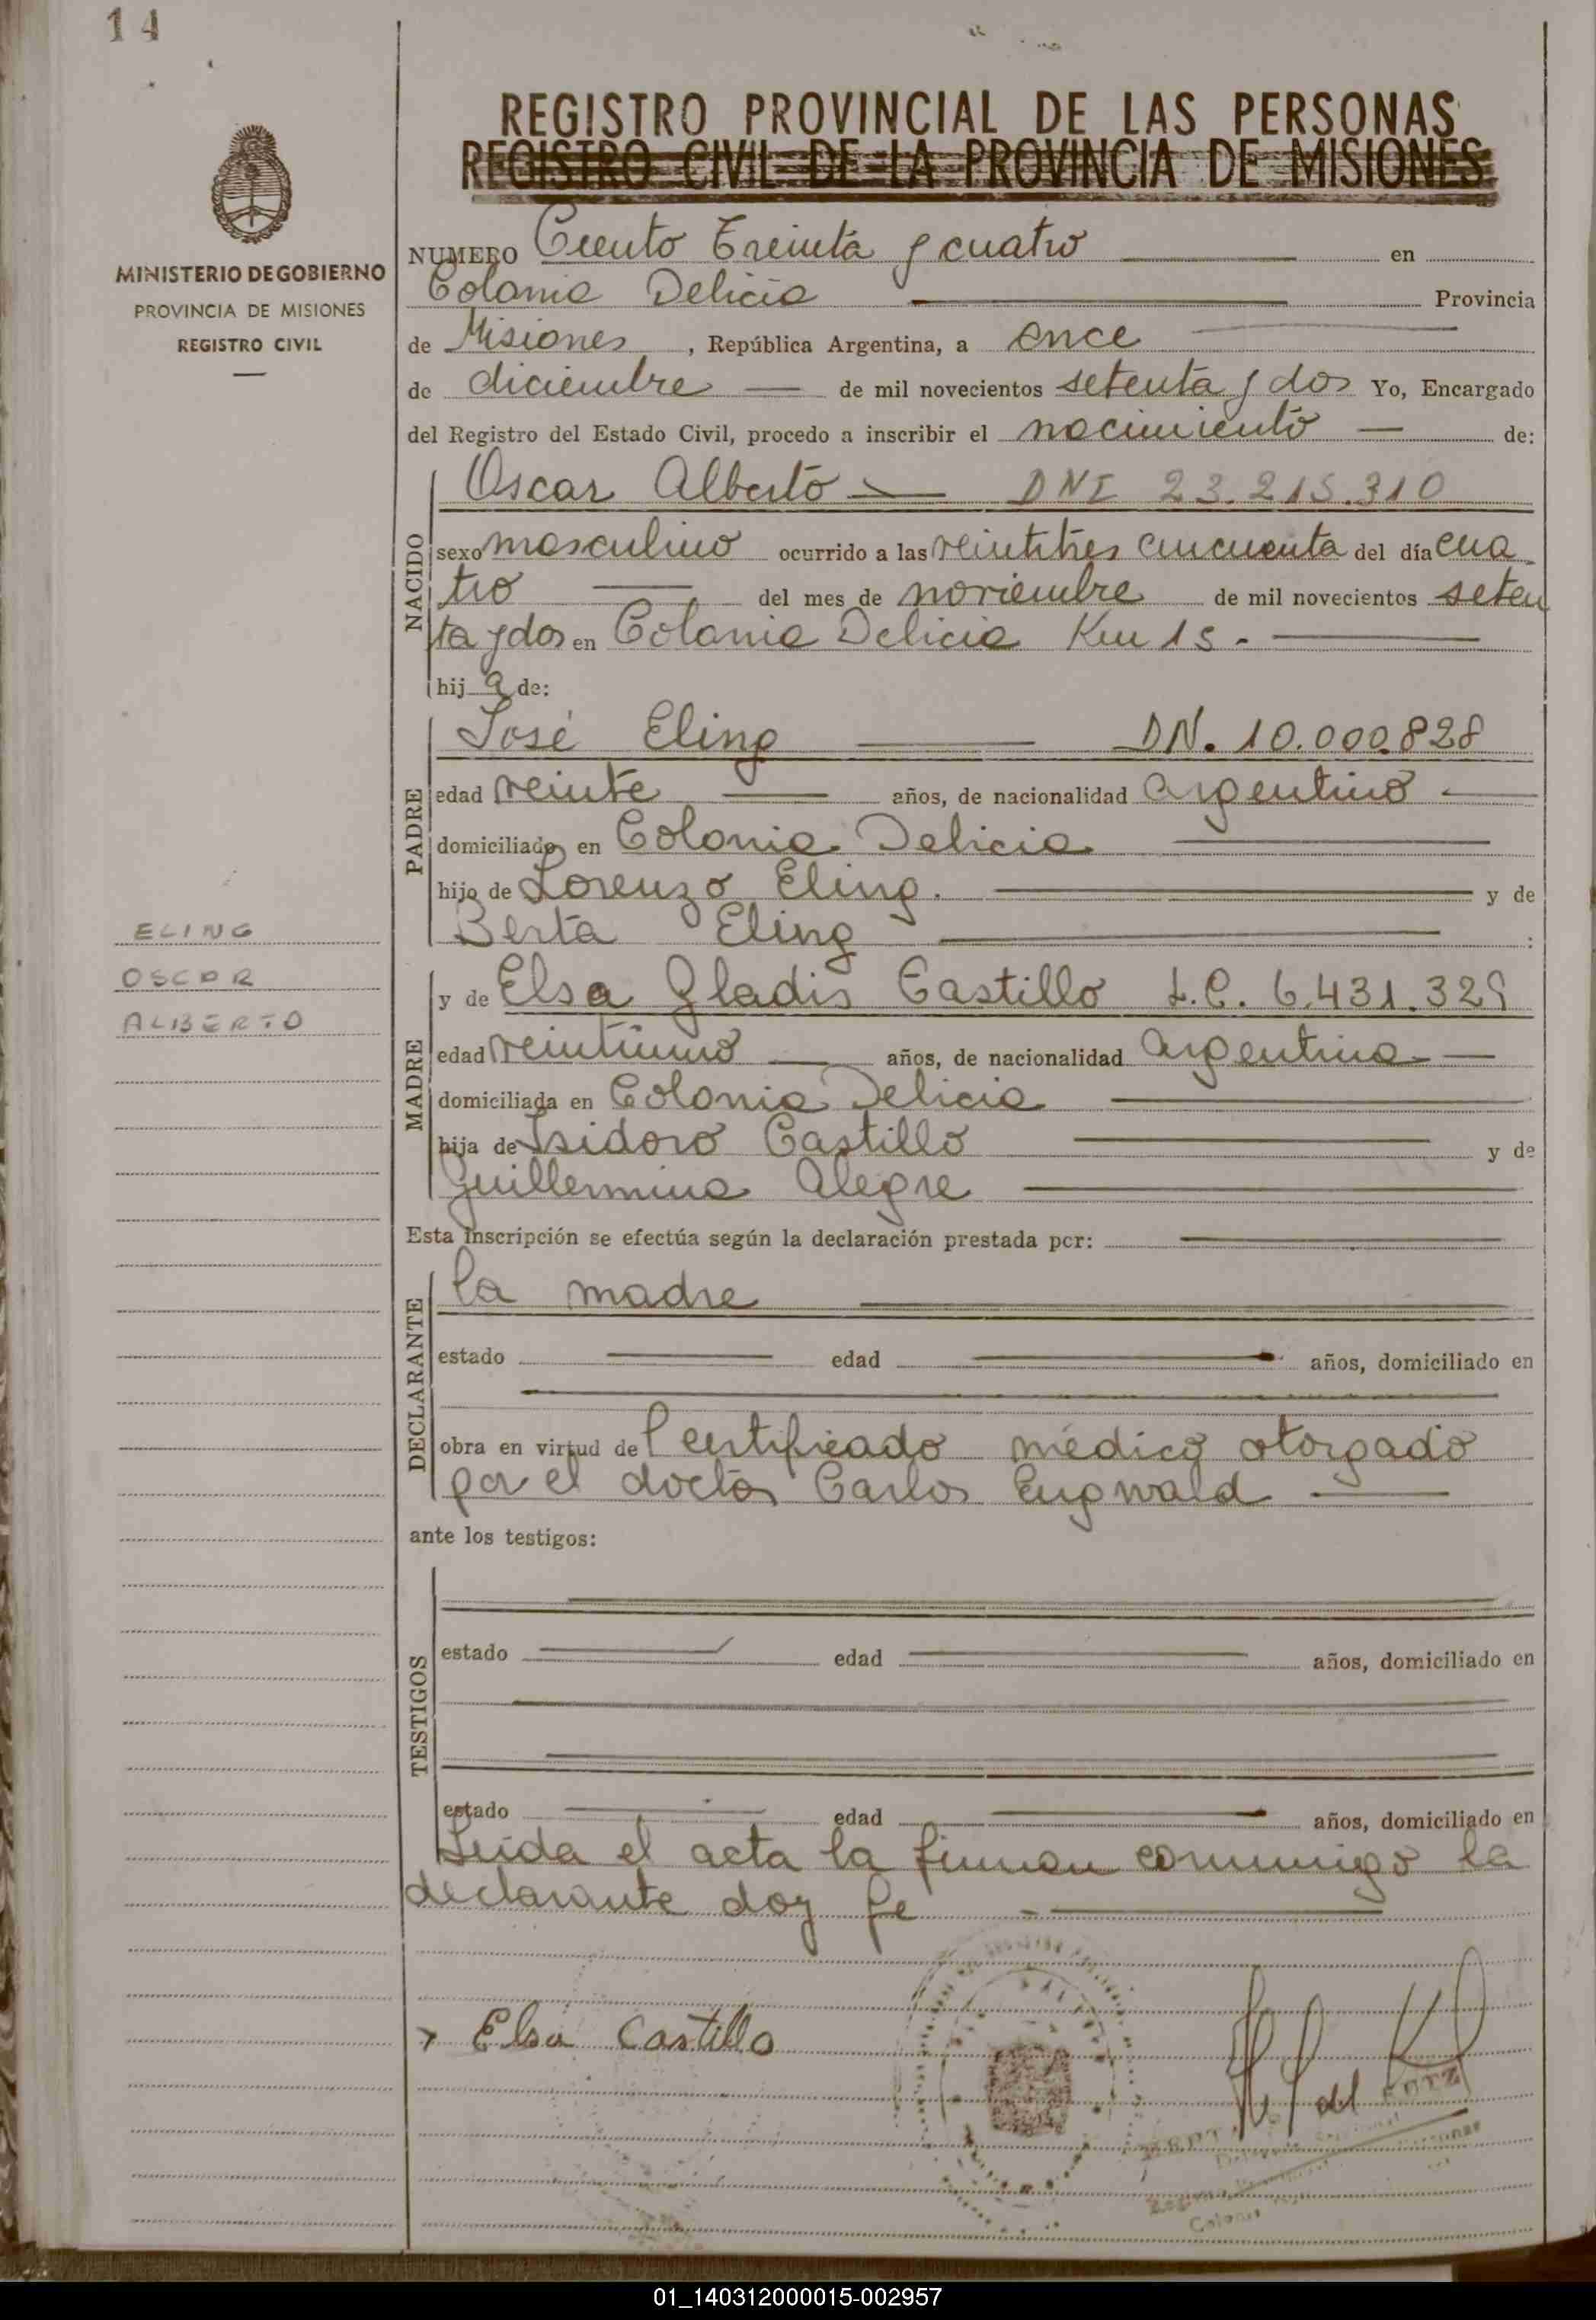 14
MINISTERIO DE GOBIERNO
PROVINCIA DE MISIONES
REGISTRO CIVIL
REGISTRO PROVINCIAL DE LAS PERSONAS
REGISTRO CIVIL DE LA PROVINCIA DE MISIONES
NUMERO Ciento Treinta y cuatro en
Colonia Delicia Provincia
de Misiones, República Argentina, a once
de diciembre de mil novecientos setenta y dos Yo, Encargado
del Registro del Estado Civil, procedo a inscribir el nacimiento de:
NACIDO
Oscar Alberto DNI 23.215.310
sexo masculino ocurrido a las veintitres cincuenta del día cua
tro del mes de noviembre de mil novecientos seten
ta y dos en Colonia Delicia Km 15.-
hij o de:
PADRE
José Eling DN. 10.000.828
edad veinte años, de nacionalidad argentino
domiciliado en Colonia Delicia
hijo de Lorenzo Eling. y de
Berta Eling :
MADRE
y de Elsa Gladis Castillo L.C. 6.431.329
edad veintiuno años, de nacionalidad argentina
domiciliada en Colonia Delicia
hija de Isidoro Castillo y de
Guillermina Alegre
ELING
OSCAR
ALBERTO
Esta inscripción se efectúa según la declaración prestada por:
DECLARANTE
la madre
estado edad años, domiciliado en
obra en virtud de Certificado médico otorgado
por el doctor Carlos Engwald
ante los testigos:
TESTIGOS
estado edad años, domiciliado en
estado edad años, domiciliado en
Leída el acta la firman conmigo la
declarante doy fe
Elsa Castillo
01_140312000015-002957